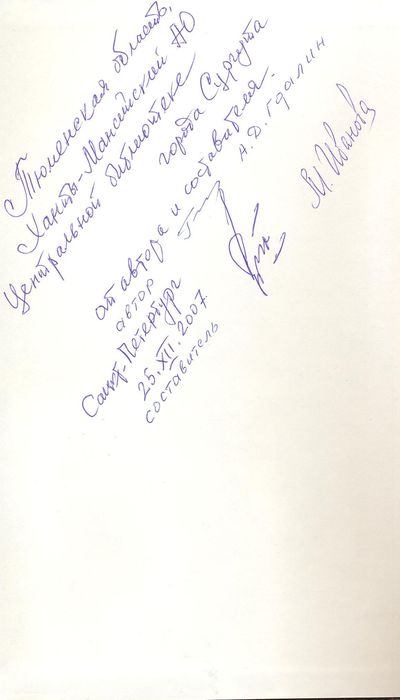 Тюменская область,
Ханты-Мансийский АО
Центральной библиотеке
города Сургута
от автора и составителя.
автор А. Д. Гдалин
Санкт-Петербург
25.XII.2007
составитель М. Иванова